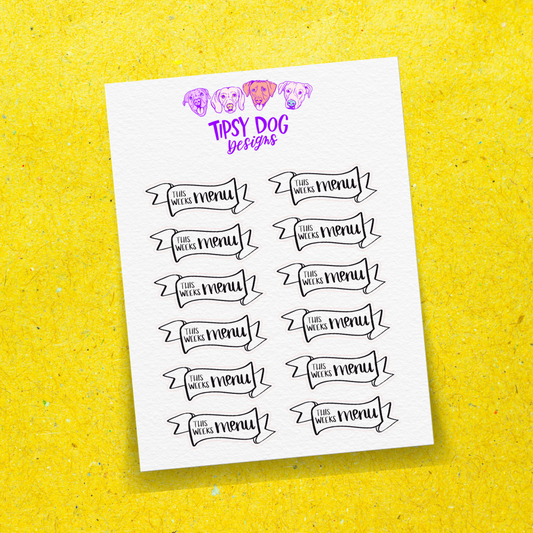 TIPSY DOG
Designs
THIS
WEEKS menu
THIS
WEEKS menu
THIS
WEEKS menu
THIS
WEEKS menu
THIS
WEEKS menu
THIS
WEEKS menu
THIS
WEEKS menu
THIS
WEEKS menu
THIS
WEEKS menu
THIS
WEEKS menu
THIS
WEEKS menu
THIS
WEEKS menu